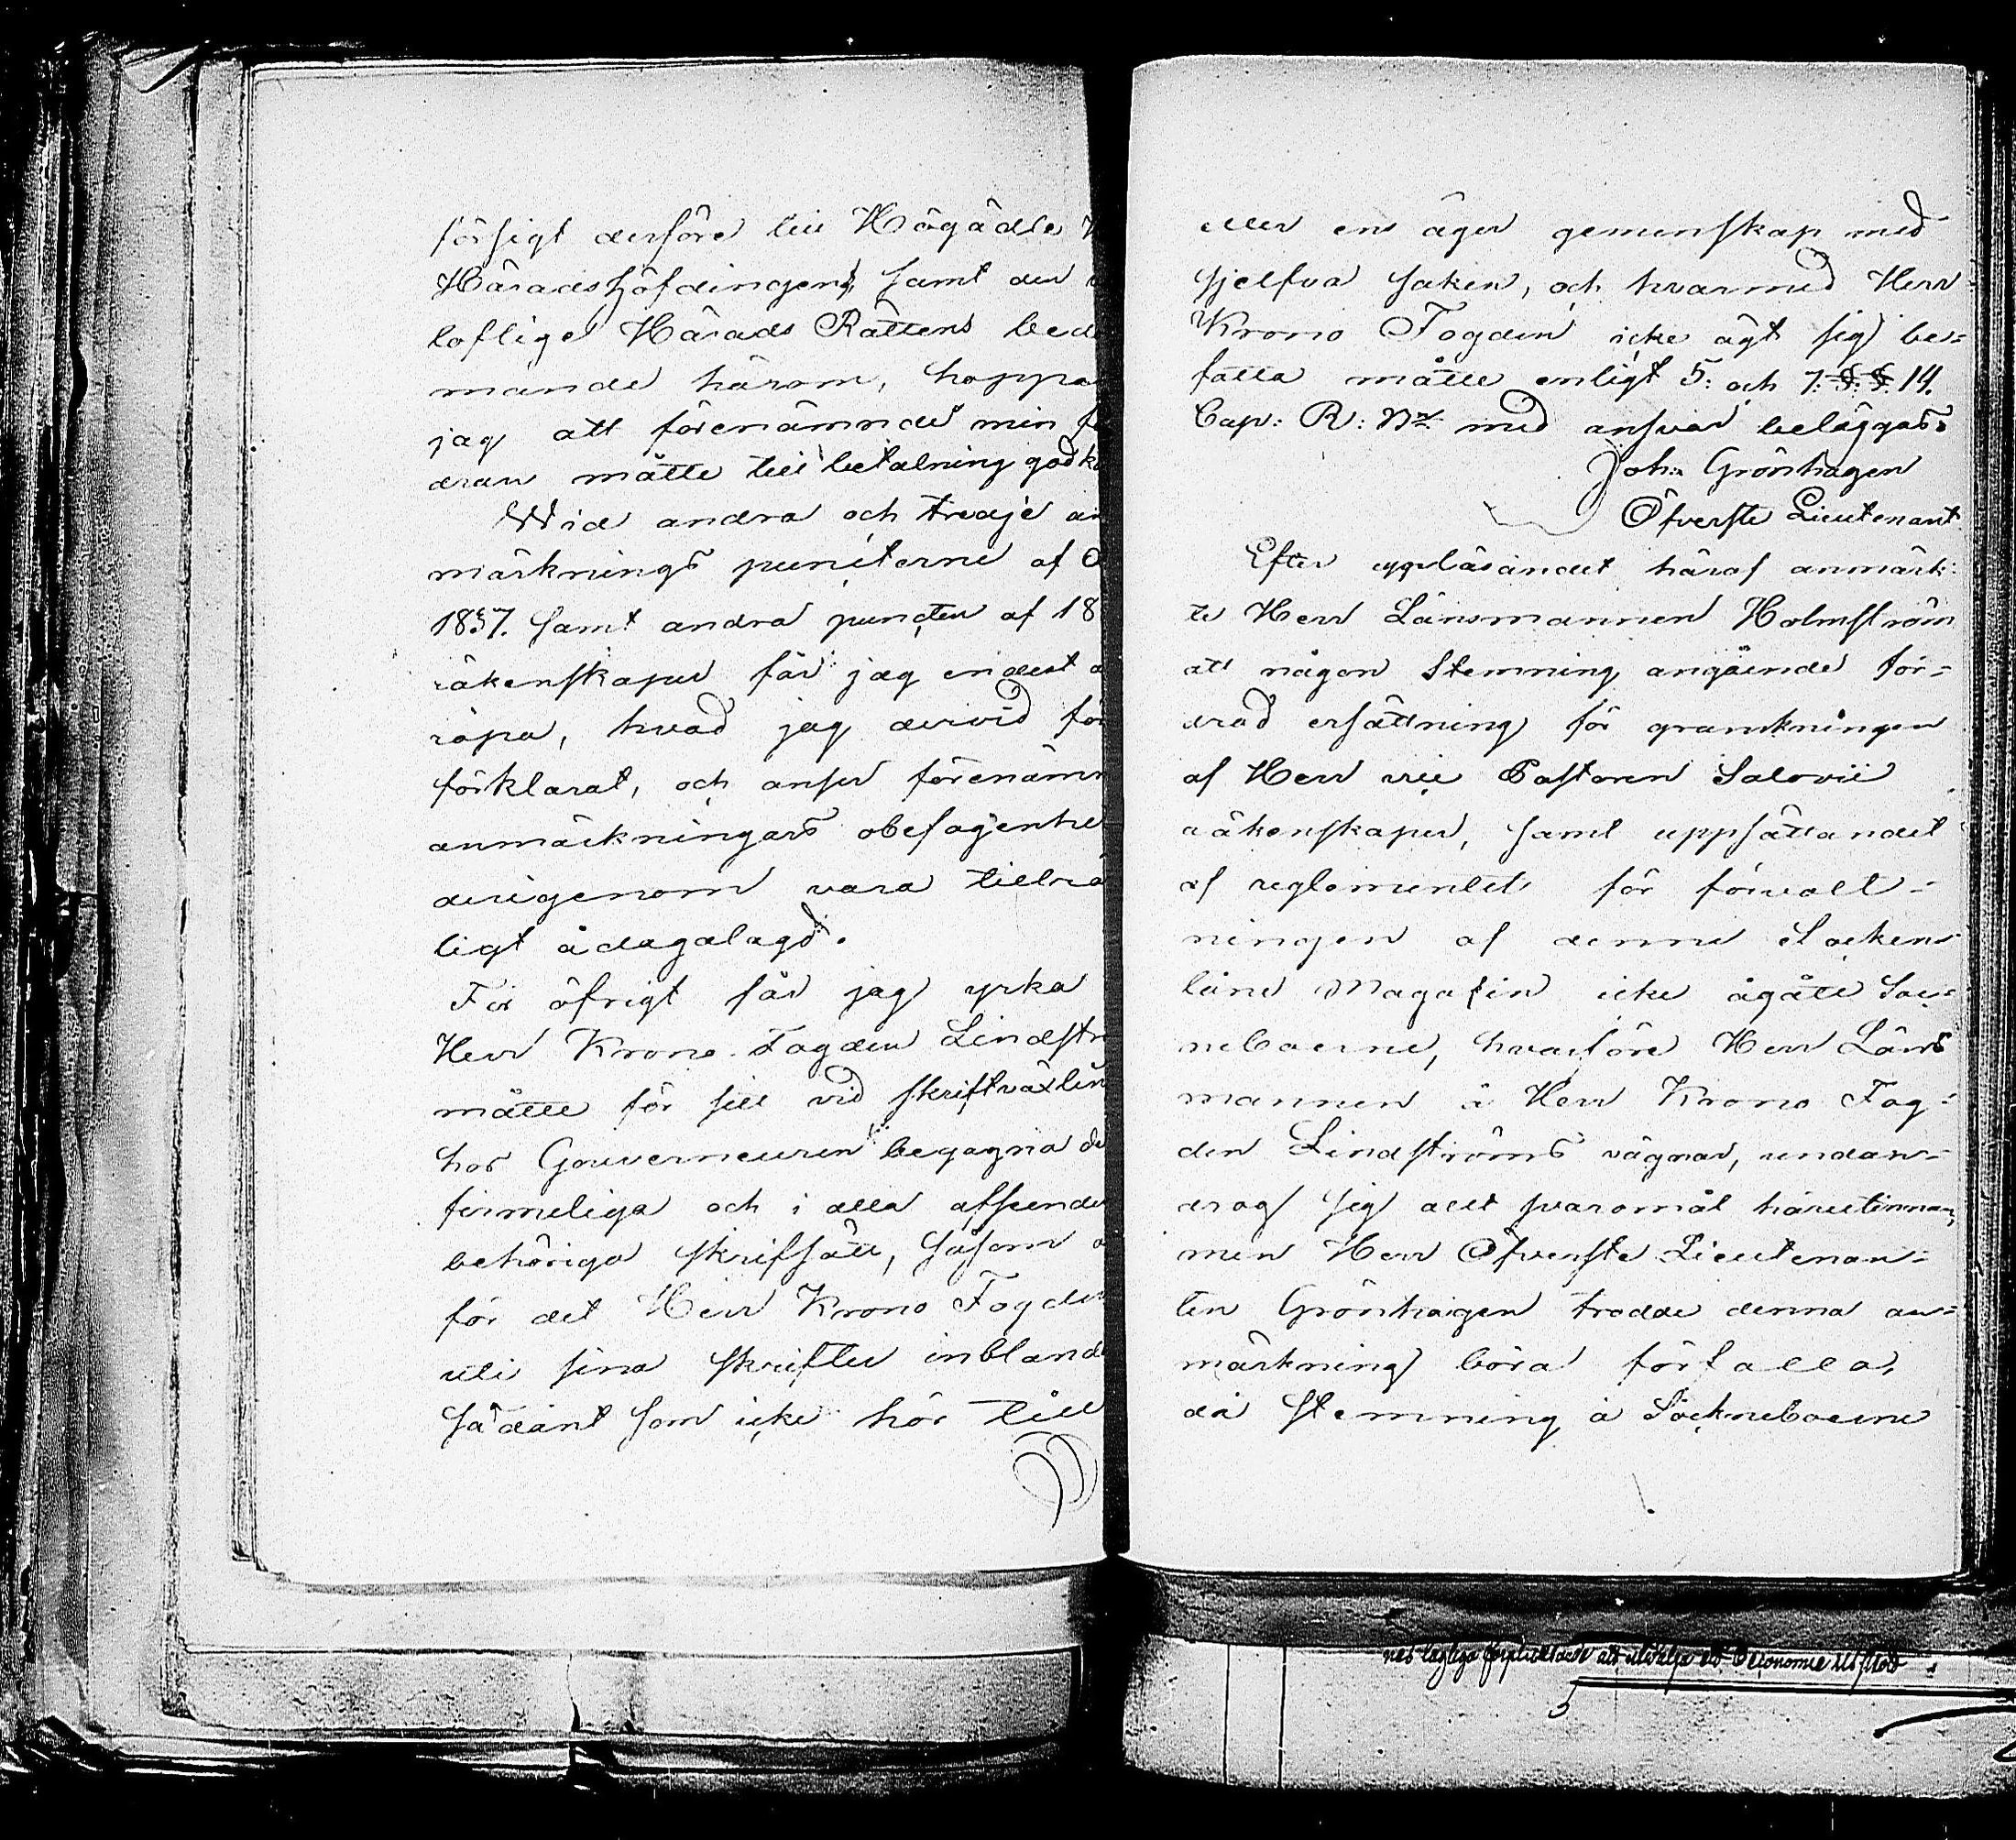 försigt derföre till Högädle
Häradshöfdingens samt den
loflige Härads Rättens bedö
mande härom, hoppa
jag att förenämnde min fo
dran måtte till betalning godk
Wid andra och tredje an
märknings puncterne af
1837. samt andra puncten af 18
räkenskaper får jag endast
ropa, hvad jag dervid för
förklarat, och anser förenämn
anmärkningars obefogenhe
derigenom vara tillrä
ligt ådagalagd.
För öfrigt får jag yrka
Herr Krono Fogden Lindströ
måtte för sitt vid skriftväxlin
hos Gouverneuren begagna de
fermeliga och i alla afseender
behöriga skrifsätt, såsom
för det Herr Krono Fogden
uti sina skrifter inblanda
sådant som icke hör till
eller ens äger gemenskap med
sjelfva saken, och hvarmed Herr
Krono Fogden icke ägt sig be=
fatta måtte enligt 5: och 7: §:§. 14.
Cap: R: Br med ansvar beläggas.
Joh: Grönhagen
Öfverste Lieutenant
Efter uppläsandet häraf anmärk:
te Herr Länsmannen Holmström
att någon Stemning angående for=
drad ersättning för granskningen
af Herr vice Pastoren Salovii
räkenskaper, samt uppsättandet
af reglementet för förvalt=
ningen af denne Sockens
låne Magasin icke ågått Soc=
neboerne, hvarföre Herr Läns
mannen å Herr Krono Fog=
den Lindströms vägnar, undan=
drog sig allt svaromål härutinnan,
men Herr Öfverste Lieutenan=
ten Grönhagen trodde denna an=
märkning böra förfalla,
då Stemning å Sockneboerne